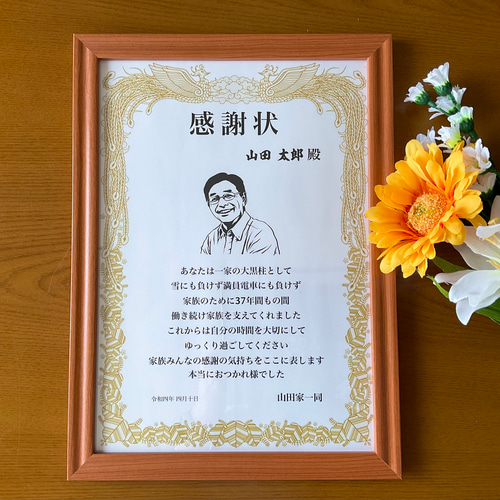 感謝状
山田 太郎 殿
あなたは一家の大黒柱として
雪にも負けず満員電車にも負けず
家族のために37年間もの間
働き続け家族を支えてくれました
これからは自分の時間を大切にして
ゆっくり過ごしてください
家族みんなの感謝の気持ちをここに表します
本当におつかれ様でした
令和四年 四月十日
山田家一同